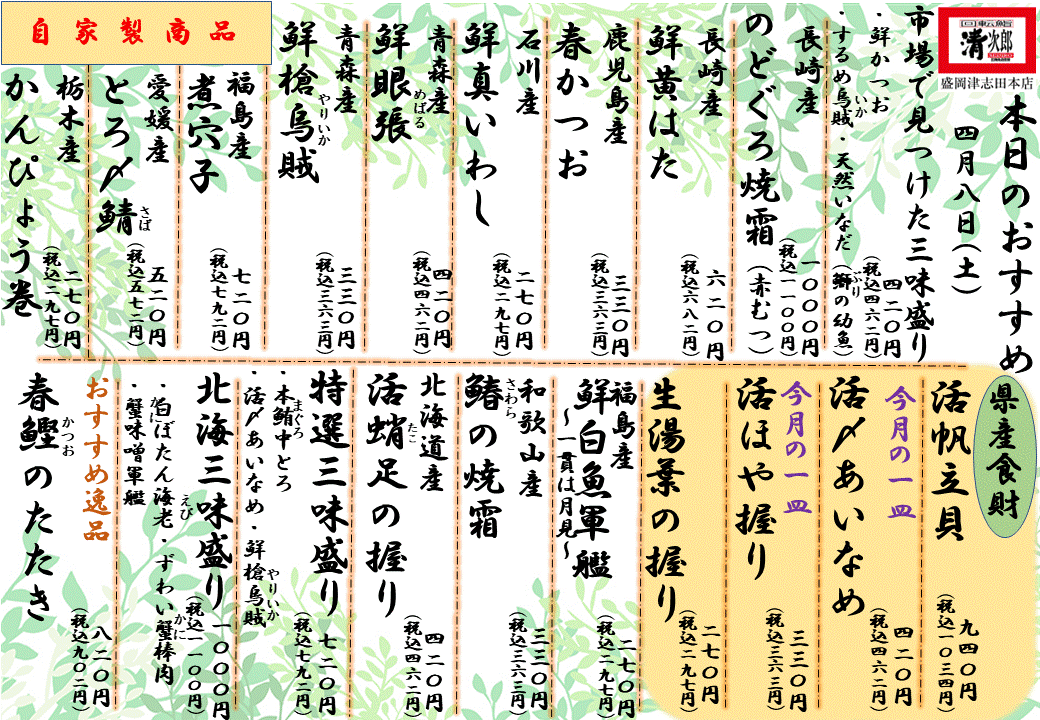 回転鮨
清次郎
盛岡津志田本店
本日のおすすめ
四月八日(土)
市場で見つけた三味盛り
・鮮かつお
四二〇円
(税込四六二円)
・するめ烏賊・天然いなだ(鰤の幼魚)
いか
ぶり
長崎産
のどぐろ焼霜(赤むつ)
一〇〇〇円
(税込一一〇〇円)
長崎産
鮮黄はた
六二〇円
(税込六八二円)
鹿児島産
春かつお
三三〇円
(税込三六三円)
石川産
鮮真いわし
二七〇円
(税込二九七円)
青森産
鮮眼張
めばる
四二〇円
(税込四六二円)
青森産
鮮槍烏賊
やりいか
三三〇円
(税込三六三円)
自家製商品
福島産
煮穴子
七二〇円
(税込七九二円)
愛媛産
とろ〆鯖
さば
五二〇円
(税込五七二円)
栃木産
かんぴょう巻
二七〇円
(税込二九七円)
県産食財
活帆立貝
九四〇円
(税込一〇三四円)
今月の一皿
活〆あいなめ
四二〇円
(税込四六二円)
今月の一皿
活ほや握り
三三〇円
(税込三六三円)
生湯葉の握り
二七〇円
(税込二九七円)
福島産
鮮白魚軍艦
~一貫は月見~
二七〇円
(税込二九七円)
和歌山産
鰆の焼霜
さわら
三三〇円
(税込三六三円)
北海道産
活蛸足の握り
たこ
四二〇円
(税込四六二円)
特選三味盛り
七二〇円
(税込七九二円)
・本鮪中とろ
まぐろ
・活〆あいなめ・鮮槍烏賊
やりいか
北海三味盛り
一〇〇〇円
(税込一一〇〇円)
・白ぼたん海老・ずわい蟹棒肉
えび
かに
・蟹味噌軍艦
かに
おすすめ逸品
春鰹のたたき
かつお
八二〇円
(税込九〇二円)